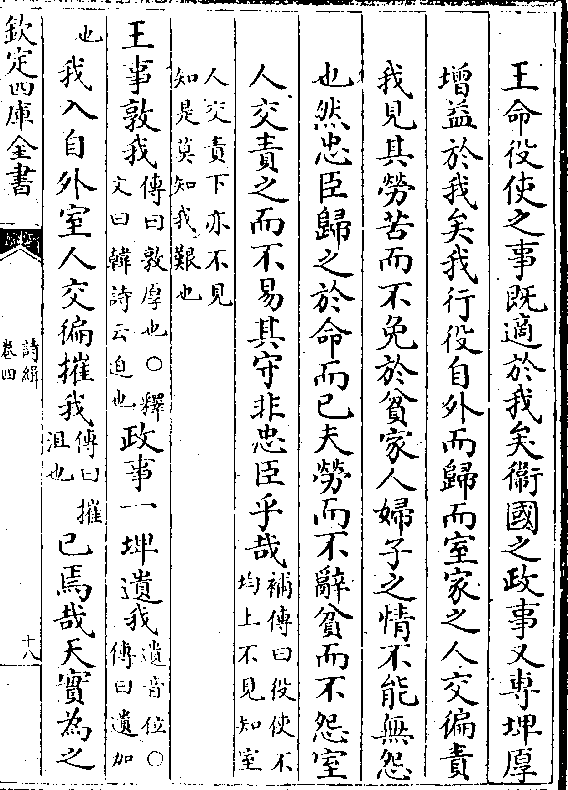 王命役使之事既適於我矣衛國之政事又專埤厚
增益於我矣我行役自外而歸而室家之人交徧責
我見其勞苦而不免於貧家人婦子之情不能無怨
也然忠臣歸之於命而已夫勞而不辭貧而不怨室
人交責之而不易其守非忠臣乎哉補傳曰役使不
均上不見知室
人交責下亦不見
知是莫知我艱也
王事敦我傳曰敦厚也○釋
文曰韓詩云迫也政事一埤遺我遺音位○
傳曰遺加
也我入自外室人交徧摧我傳曰摧
沮也已焉哉天實為之
欽定四庫全書
詩緝
卷四
十八